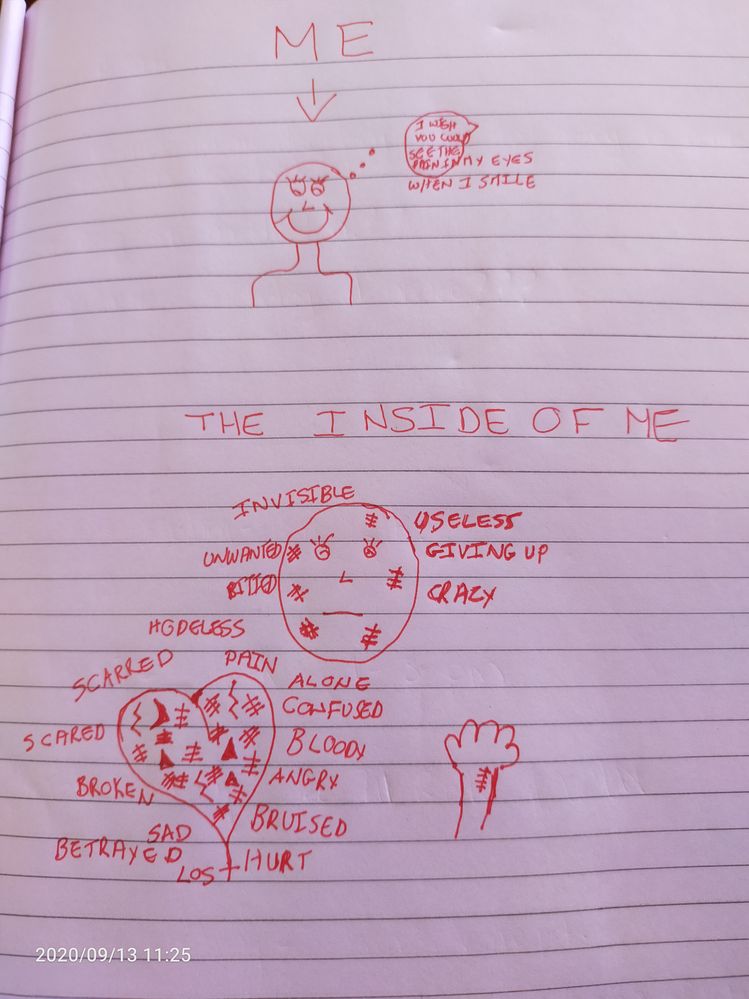 ME
I WISH
YOU COULD
SEE THE
PAIN IN MY EYES
WHEN I SMILE
THE INSIDE OF ME
INVISIBLE
USELESS
UNWANTED
GIVING UP
CRAZY
HOPELESS
SCARRED
PAIN
ALONE
CONFUSED
SCARED
BLOODY
BROKEN
ANGRY
SAD
BRUISED
BETRAYED
LOST
HURT
2020/09/13 11:25